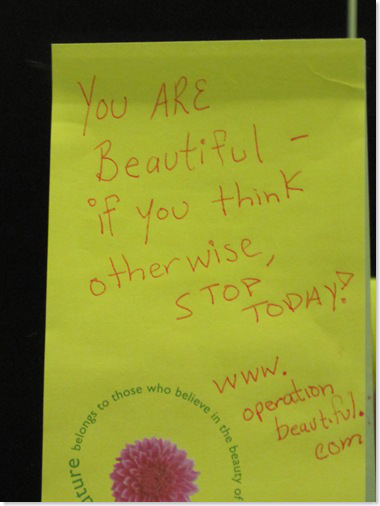 You ARE
Beautiful -
if you think
otherwise,
STOP
TODAY!
www.
operation
beautiful.
com
uture belongs to those who believe in the beauty of